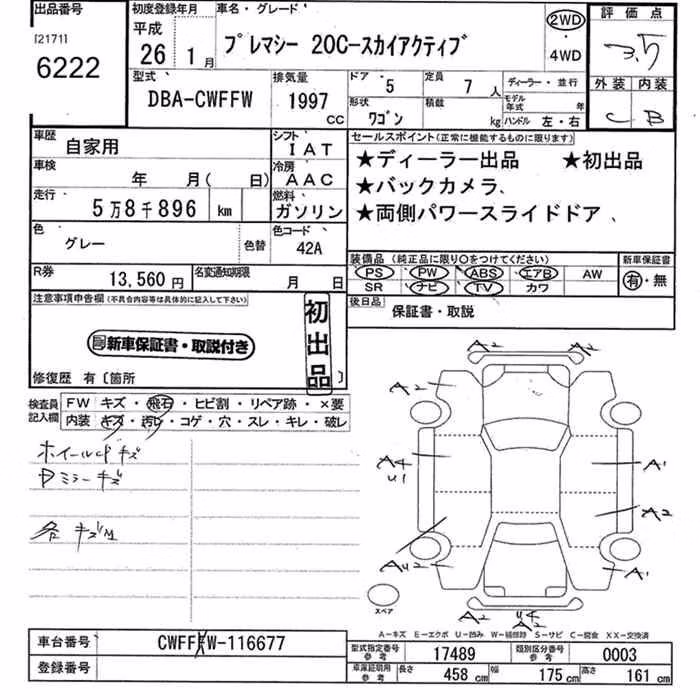 出品番号 初度登録年月 車名・グレード 評価点
[2171] 平成 2WD
6222 26 1月 プレマシー 20C-スカイアクティブ ・ 3.5
4WD
型式 排気量 ドア 5 定員 7人 ディーラー・並行 外装 内装
DBA-CWFFW 1997 cc 形状 ワゴン 積載 kg モデル年式 年 ハンドル 左・右 C B
車歴 自家用 シフト IAT セールスポイント(正常に機能するものに限ります)
車検 年 月( 日) 冷房 AAC ★ディーラー出品 ★初出品
走行 5万8千896 km 燃料 ガソリン ★バックカメラ、
色 グレー 色替 色コード 42A ★両側パワースライドドア、
装備品(純正品に限り○をつけてください) 新車保証書
R券 13,560円 名変通知期限 月 日 PS PW ABS エアB AW 有・無
SR ナビ TV カワ
注意事項申告欄(不具合内容等は具体的に記入して下さい) 初出品 後日品 保証書・取説
新車保証書・取説付き
修復歴 有〔箇所 〕
検査員記入欄 FW キズ・飛石・ヒビ割・リペア跡・×要
内装 キズ・汚レ・コゲ・穴・スレ・キレ・破レ
ホイールcPキズ
Dミラーキズ
各キズM
A2 A2
A2
A4 U1 A1
A2
AU2 A1
A2 U4 A2
スペア
A-キズ E-エクボ U-凹み W-補修跡 S-サビ C-腐食 XX-交換済
車台番号 CWFFW-116677 型式指定番号 参考 17489 類別区分番号 参考 0003
登録番号 車庫証明用 参考 長さ 458 cm 幅 175 cm 高さ 161 cm